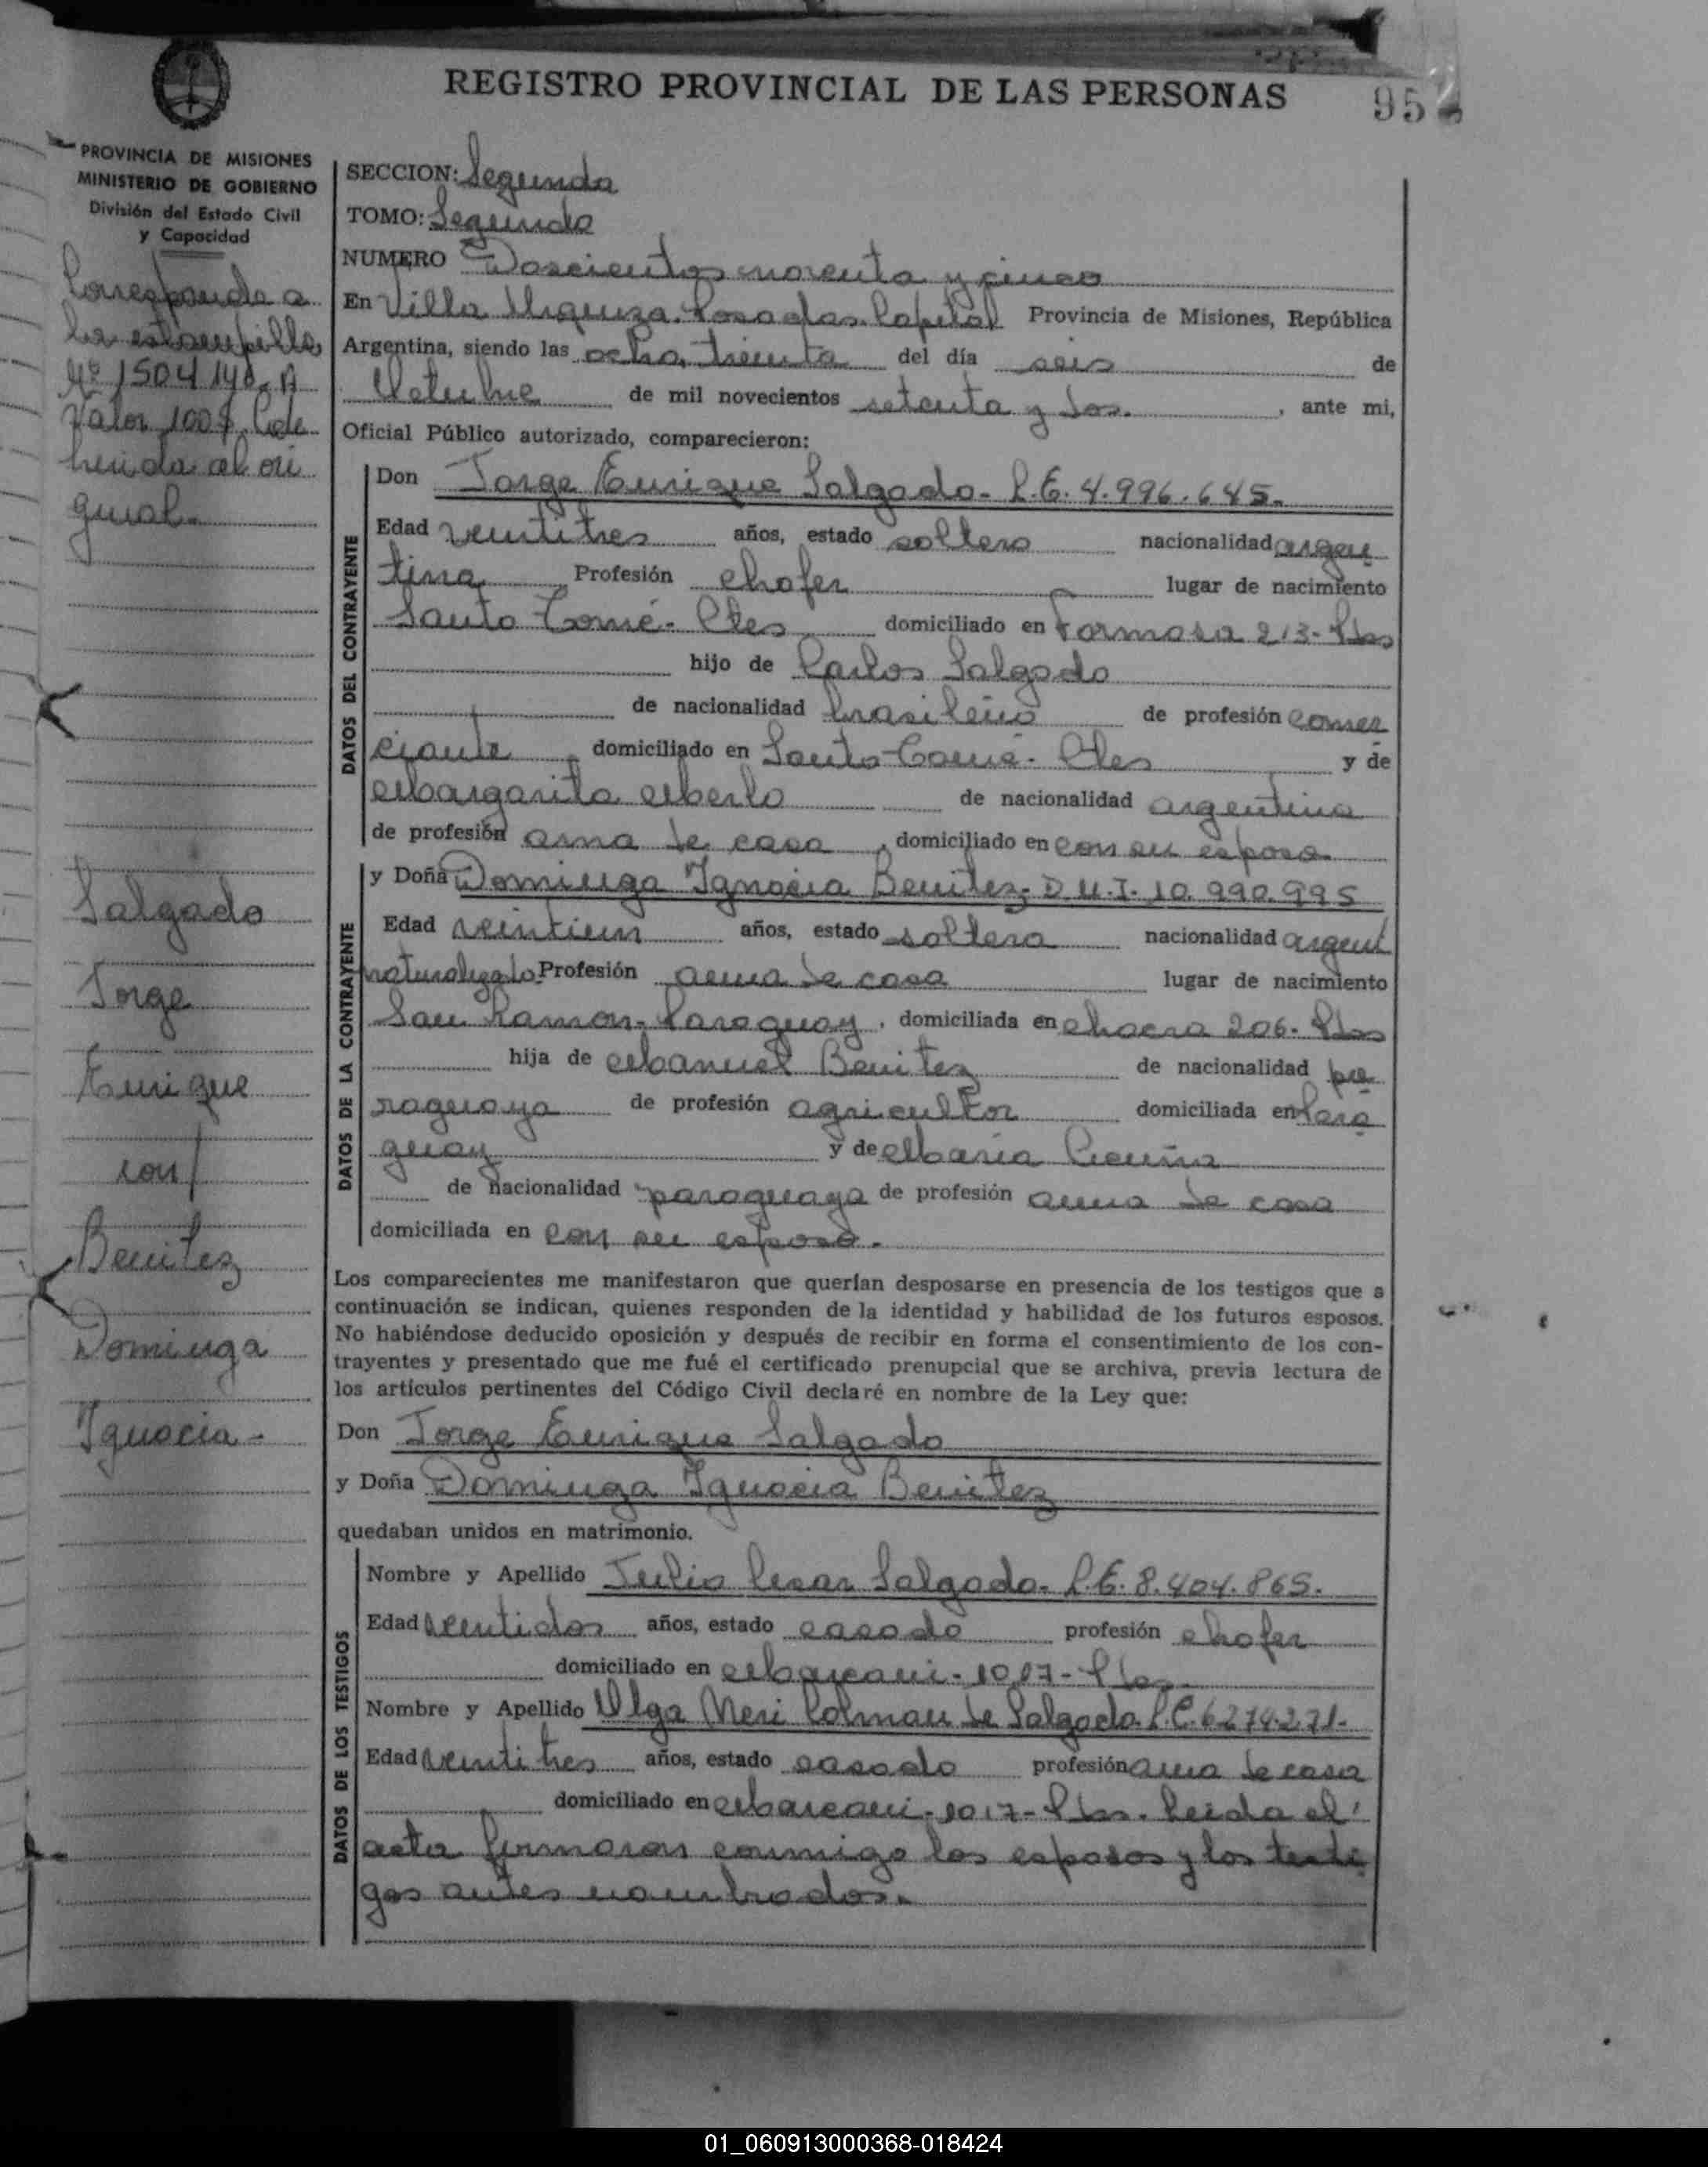 REGISTRO PROVINCIAL DE LAS PERSONAS
95
PROVINCIA DE MISIONES
MINISTERIO DE GOBIERNO
División del Estado Civil
y Capacidad
Corresponde a
la estampilla
Nº 1504140. A
Valor 100$. Cade
herida al ori
ginal.
Salgado
Jorge
Enrique
con/
Benitez
Dominga
Ignacia-
SECCION: Segunda
TOMO: Segundo
NUMERO Doscientos noventa y cinco
En Villa Urquiza. Posadas. Capital Provincia de Misiones, República
Argentina, siendo las ocho, treinta del día seis de
Octubre de mil novecientos setenta y dos. , ante mi,
Oficial Público autorizado, comparecieron:
DATOS DEL CONTRAYENTE
Don Jorge Enrique Salgado- L.E. 4.996.645.
Edad veintitres años, estado soltero nacionalidad argen
tina Profesión chofer lugar de nacimiento
Santo Tomé- Ctes domiciliado en Formosa 213- Pdas
hijo de Carlos Salgado
de nacionalidad brasileño de profesión comer
ciante , domiciliado en Santo Tomé- Ctes y de
Margarita Merlo de nacionalidad argentina
de profesión ama de casa , domiciliado en con su esposo
DATOS DE LA CONTRAYENTE
y Doña Dominga Ignacia Benitez- D.U.I. 10.990.995
Edad veintiun años, estado soltera nacionalidad argent
naturalizada Profesión ama de casa lugar de nacimiento
San Ramon- Paraguay , domiciliada en chacra 206- Pdas
hija de Manuel Benitez de nacionalidad pa
raguaya de profesión agricultor domiciliada en Para
guay y de Maria
de nacionalidad paraguaya de profesión ama de casa
domiciliada en con su esposo.
Los comparecientes me manifestaron que querían desposarse en presencia de los testigos que a
continuación se indican, quienes responden de la identidad y habilidad de los futuros esposos.
No habiéndose deducido oposición y después de recibir en forma el consentimiento de los con-
trayentes y presentado que me fué el certificado prenupcial que se archiva, previa lectura de
los artículos pertinentes del Código Civil declaré en nombre de la Ley que:
Don Jorge Enrique Salgado
y Doña Dominga Ignacia Benitez
quedaban unidos en matrimonio.
DATOS DE LOS TESTIGOS
Nombre y Apellido Julio Cesar Salgado- L.E. 8.404.865.
Edad veintidos años, estado casado profesión chofer
domiciliado en - 1017- Pdas
Nombre y Apellido Olga Neri Colman de Salgado L.C. 6.274.271-
Edad veintitres años, estado casado profesión ama de casa
domiciliado en - 1017- Pdas. Leida el
acta firmaron conmigo los esposos y los testi
gos antes nombrados.
01_060913000368-018424